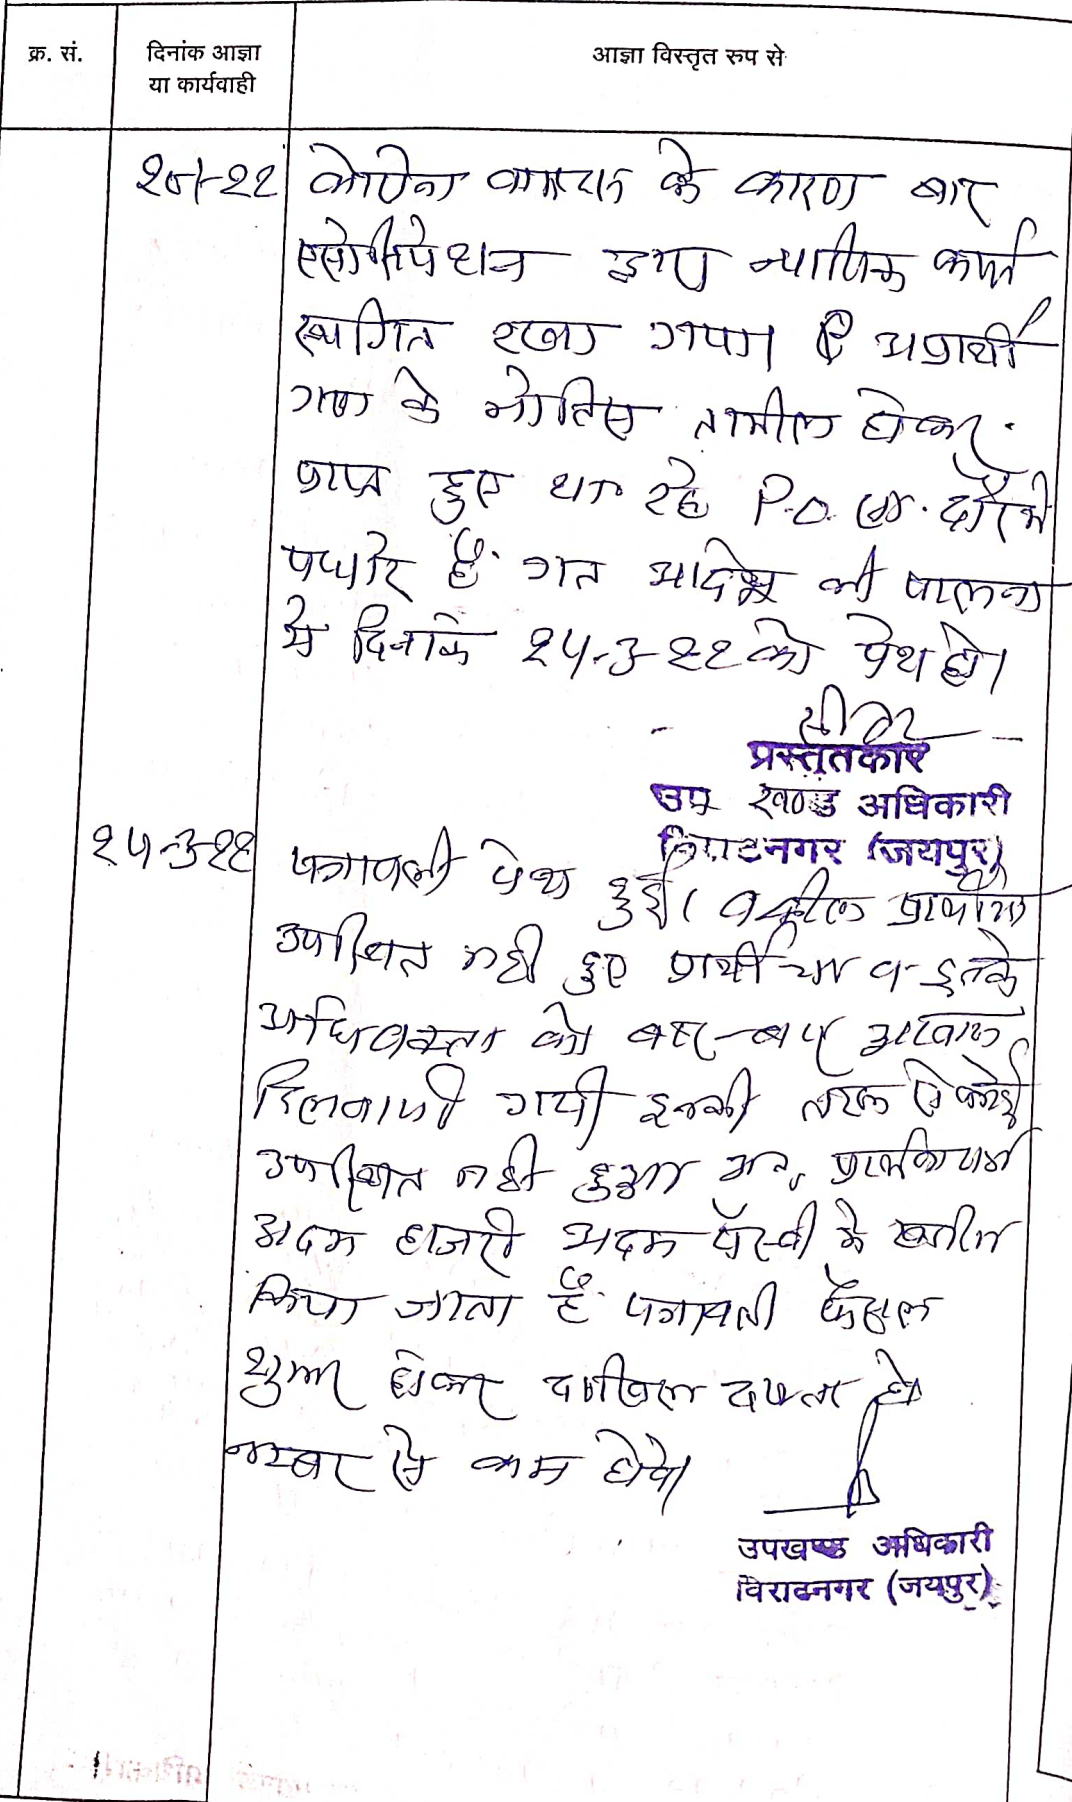 क्र. सं.
दिनांक आज्ञा
या कार्यवाही
आज्ञा विस्तृत रुप से
के कारण बार
एसोसियेशन द्वारा न्यायिक कार्य
स्थगित रखा गया। अप्रार्थी
गण के नोटिस तामील होकर
प्राप्त हुए रहे P.O. सा. दौरे में
पधारे हैं गत आदेश की पालना
में दिनांक २५-3-२२ को पेश हो।
प्रस्तुतकार
उप खण्ड अधिकारी
विराटनगर (जयपुर)
२५-3-२२
पत्रावली पेश हुई। वकील
उपस्थित नहीं हुए प्रार्थीया व इनके
अधिवक्ता को बार-बार आवाज
दिलवायी गयी इनकी तरफ से कोई
उपस्थित नहीं हुआ अतः
अदम हाजरी अदम पैरवी में खारीज
किया जाता हैं पत्रावली फैसल
शुमार होकर दाखिल दफ्तर हो
नम्बर से कम होवे।
उपखण्ड अधिकारी
विराटनगर (जयपुर)